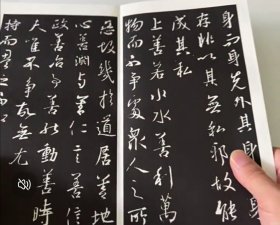 身而身先外其身
存非以其無私邪故能
成其私
上善若水水善利萬
物而不爭處眾人之所
惡故幾於道居善地
心善淵與善仁言善信
政善治事善能動善時
夫唯不爭故無尤
持而盈之